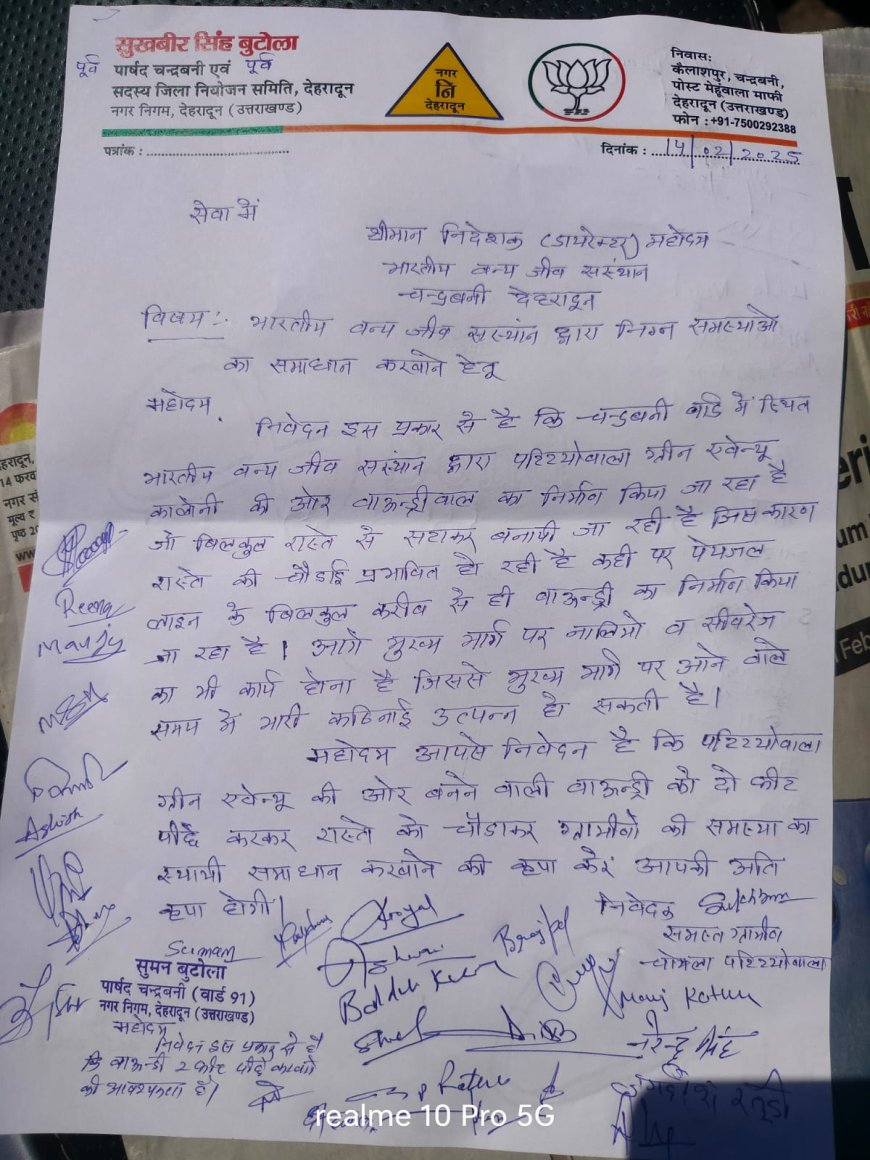 सुखबीर सिंह बुटोला
पूर्व पार्षद चन्द्रबनी एवं पूर्व
सदस्य जिला नियोजन समिति, देहरादून
नगर निगम, देहरादून (उत्तराखण्ड)
नगर
नि
देहरादून
निवासः
कैलाशपुर, चन्द्रबनी,
पोस्ट मेहूंवाला माफी
देहरादून (उत्तराखण्ड)
फोन : +91-7500292388
पत्रांक : ............................................
दिनांक : ....14/02/2025
सेवा में
श्रीमान निदेशक (डायरेक्टर) महोदय
भारतीय वन्य जीव संस्थान
चन्द्रबनी देहरादून
विषय :- भारतीय वन्य जीव संस्थान द्वारा निम्न समस्याओं
का समाधान करवाने हेतू
महोदय,
निवेदन इस प्रकार से है कि चन्द्रबनी वार्ड में स्थित
भारतीय वन्य जीव संस्थान द्वारा पटिटयोवाला ग्रीन एवेन्यू
कालोनी की ओर वाऊन्ड्रीवाल का निर्माण किया जा रहा है
जो बिलकुल रास्ते से सटाकर बनायी जा रही है जिस कारण
रास्ते की चौडाई प्रभावित हो रही है कही पर पेयजल
लाइन के बिलकुल करीब से ही वाऊन्ड्री का निर्माण किया
जा रहा है। आगे मुख्य मार्ग पर नालियो व सीवरेज
का भी कार्य होना है जिससे मुख्य मार्ग पर आने वाले
समय में भारी कठिनाई उत्पन्न हो सकती है।
महोदय आपसे निवेदन है कि पटिटयोवाला
ग्रीन एवेन्यू की ओर बनने वाली वाऊन्ड्री को दो फीट
पीछे करकर रास्ते को चौडाकर ग्रामीणो की समस्या का
स्थायी समाधान करवाने की कृपा करें आपकी अति
कृपा होगी।
निवेदक
समस्त ग्रामीण
चोयला पटिटयोवाला
Reena
Manju
Ashish
Suman
सुमन बुटोला
पार्षद चन्द्रबनी (वार्ड 91)
नगर निगम, देहरादून (उत्तराखण्ड)
महोदय
निवेदन इस प्रकार से है
कि वाऊन्ड्री 2 फीट पीछे करवाने
की आवश्यकता है।
नरेन्द्र सिंह
realme 10 Pro 5G